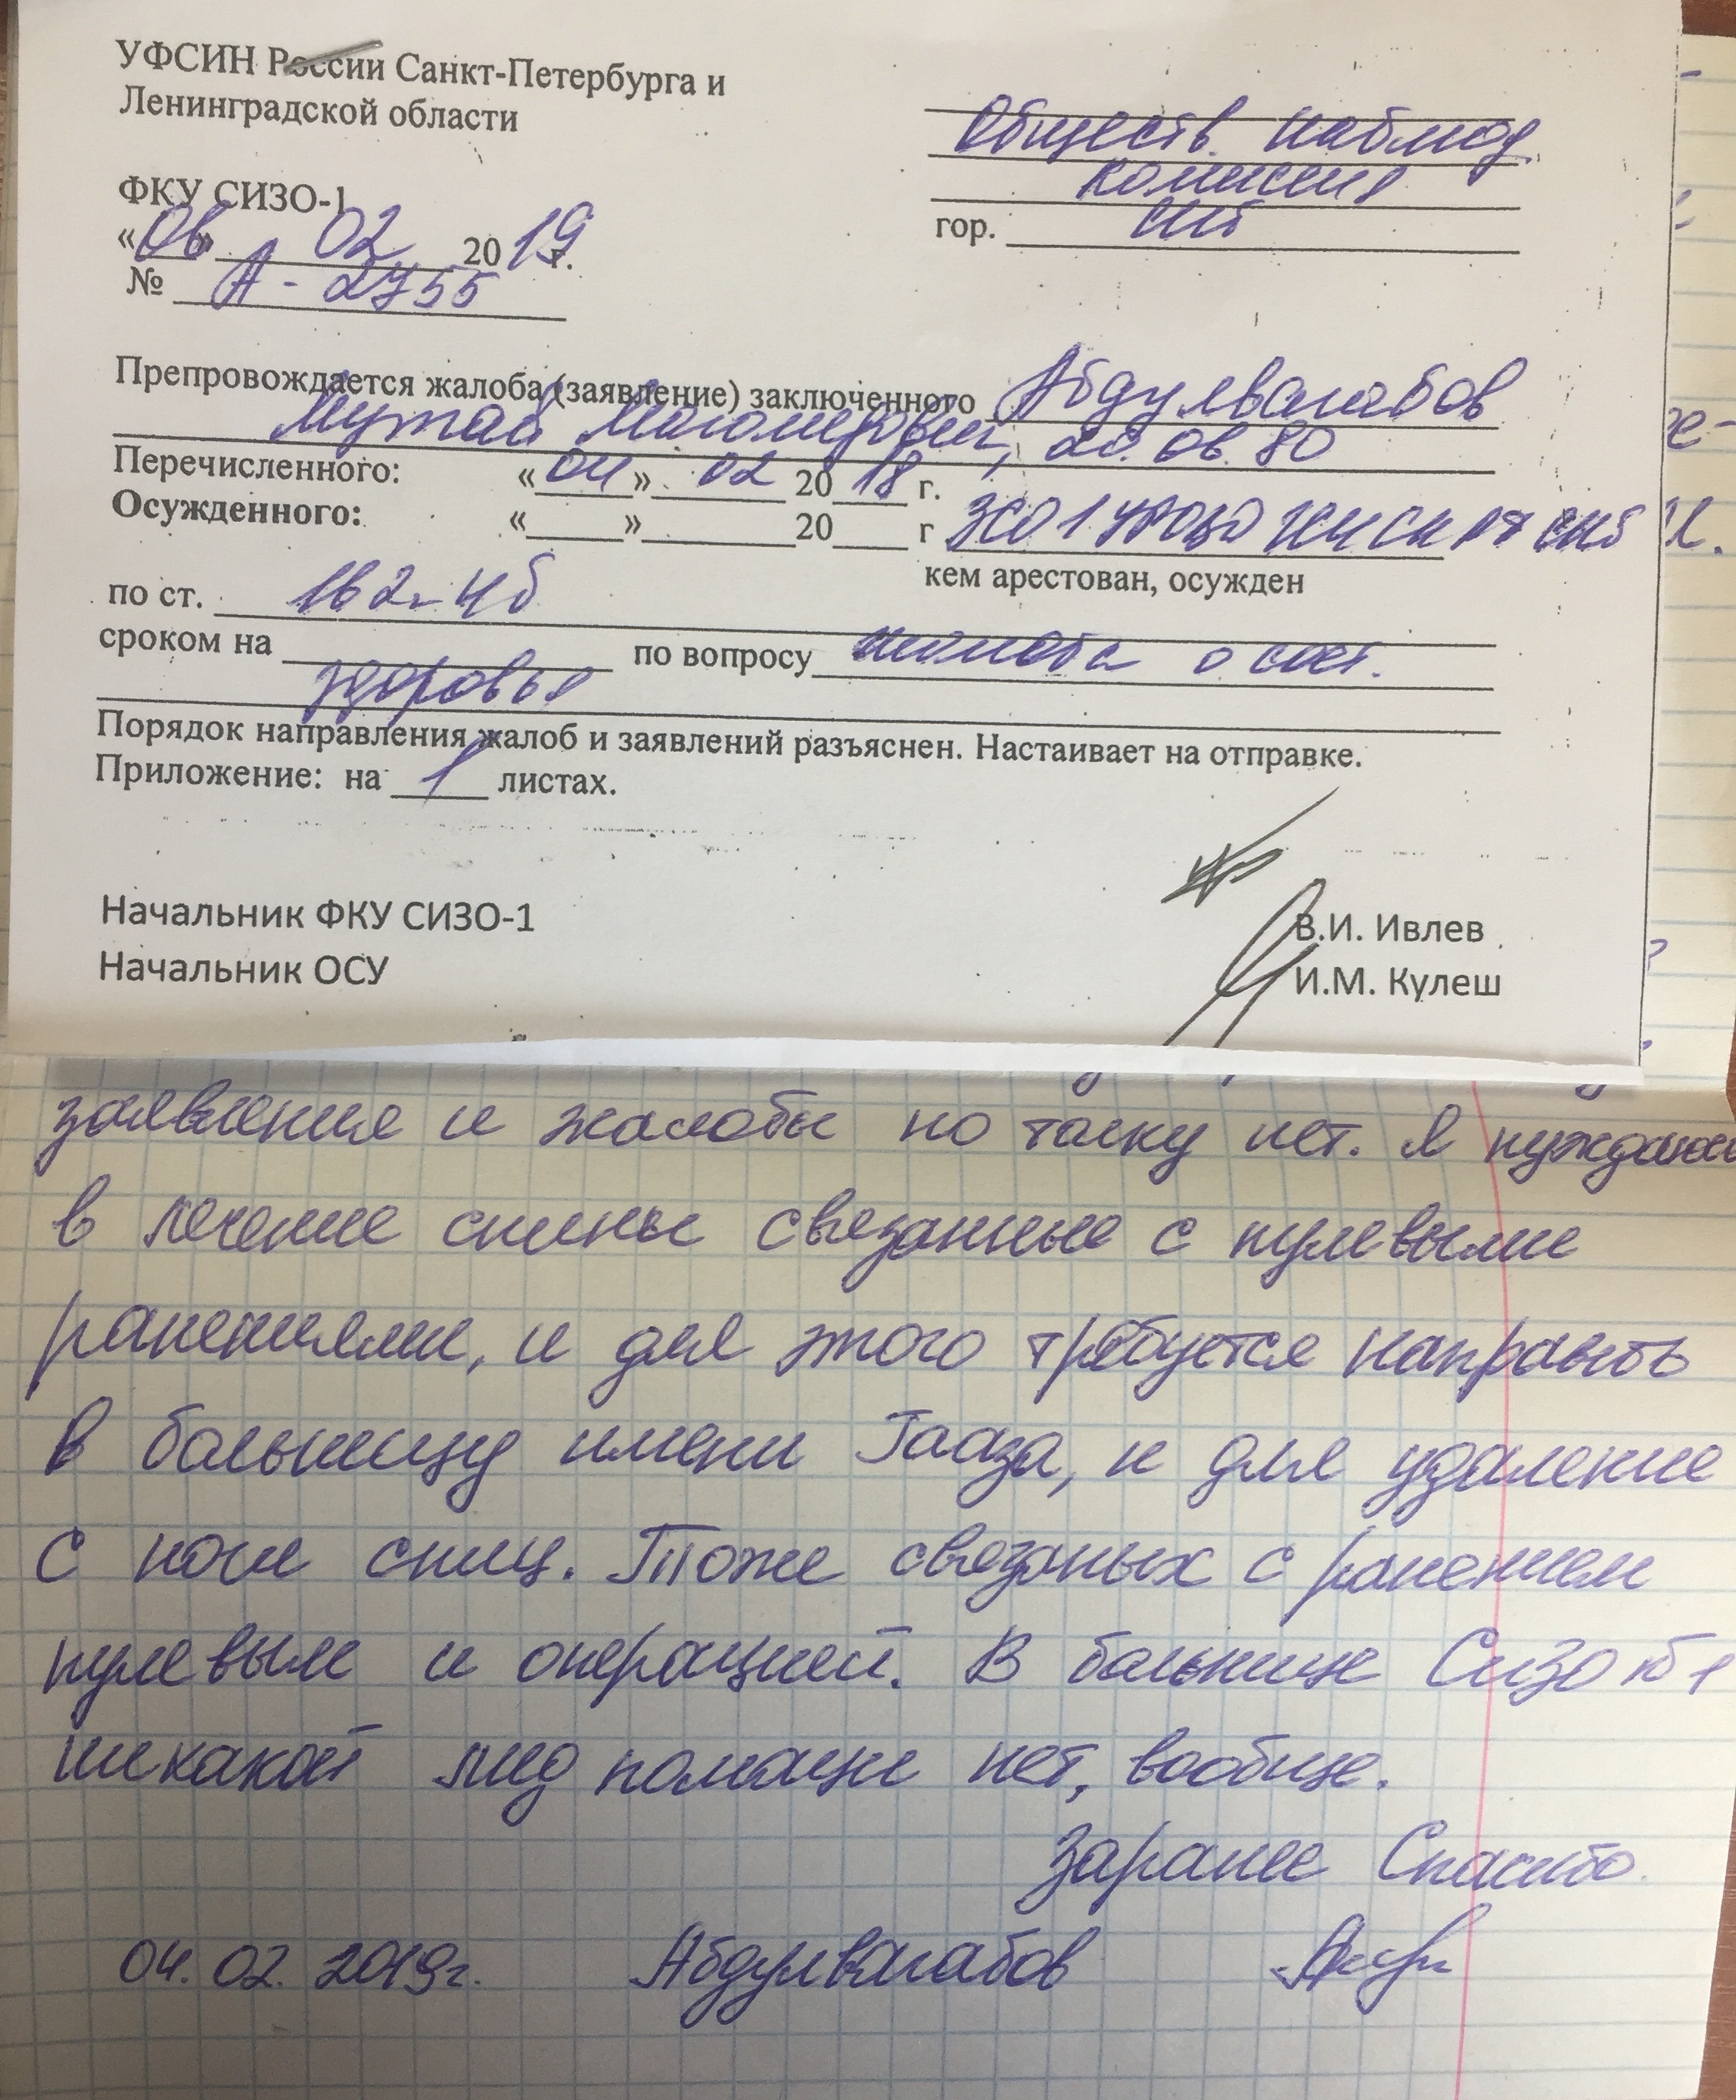 УФСИН России Санкт-Петербурга и
Ленинградской области
Обществ. наблюд
комиссия
гор. СПб
ФКУ СИЗО-1
«06» 02 2019 г.
№ А-2755
Препровождается жалоба (заявление) заключенного Абдулвагабов
Мутай Магомедович, 20.06.80
Перечисленного: «04» 02 2018 г.
Осужденного: « » 20 г
кем арестован, осужден
по ст. 162 ч 4б
сроком на по вопросу жалоба о сост.
здоровья
Порядок направления жалоб и заявлений разъяснен. Настаивает на отправке.
Приложение: на 1 листах.
Начальник ФКУ СИЗО-1 В.И. Ивлев
Начальник ОСУ И.М. Кулеш
заявления и жалобы но толку нет. Я нуждаюсь
в лечение спины связанные с пулевыми
ранениями, и для этого требуется направить
в больницу имени Гааза, и для удаление
с ноги спиц. Тоже связаных с ранением
пулевым и операцией. В больнице Сизо №1
никакой мед помощи нет, вообще.
Заранее Спасибо.
04.02.2019г. Абдулвагабов